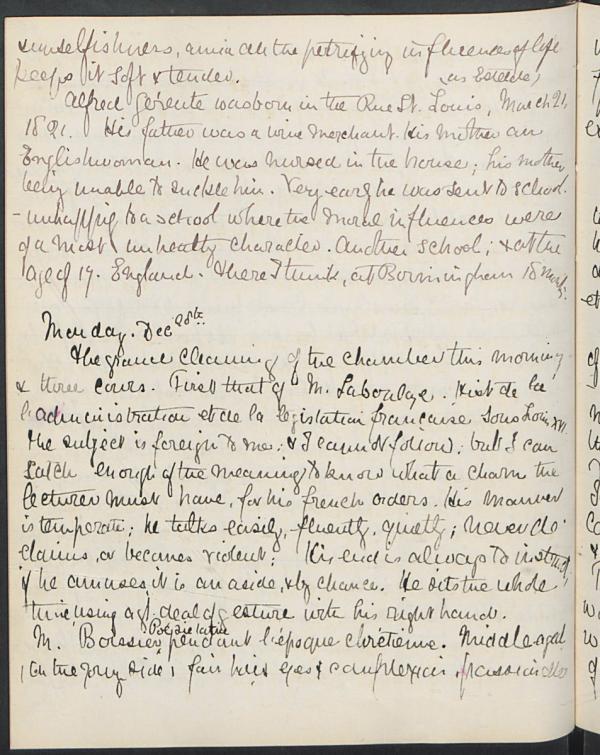 unselfishness, amid all the petrifying influences of life
keeps it soft & tender.
as Estelle,
Alfred Gérente was born in the Rue St. Louis, March 21,
1821. His father was a wine merchant. His mother an
Englishwoman. He was nursed in the house; his mother
being unable to suckle him. Very early he was sent to school
- unhappily to a school where the moral influences were
of a most unhealthy character. Another school; & at the
age of 17. England. There I think, at Birmingham 18 months.
Monday. Dec 28th
The grand cleaning of the chamber this morning
& three cours. First that of M. Laboulaye. Hist de la
l'administration et de la législation française sous Louis XVI.
The subject is foreign to me; & I cannot follow; but I can
catch enough of the meaning to know what a charm the
lecturer must have, for his french orders. His manner
is temperate; he talks easily, fluently, quietly; never de-
claims, or becomes violent; His end is always to instruct,
if he amuses, it is an aside, & by chance. He sits the whole
time, using a gt. deal of gesture with his right hand.
Poésie latine
M. Boissier, pendant l'époque chrétienne. Middle-aged,
(on the young side) fair hair eyes & complexion,